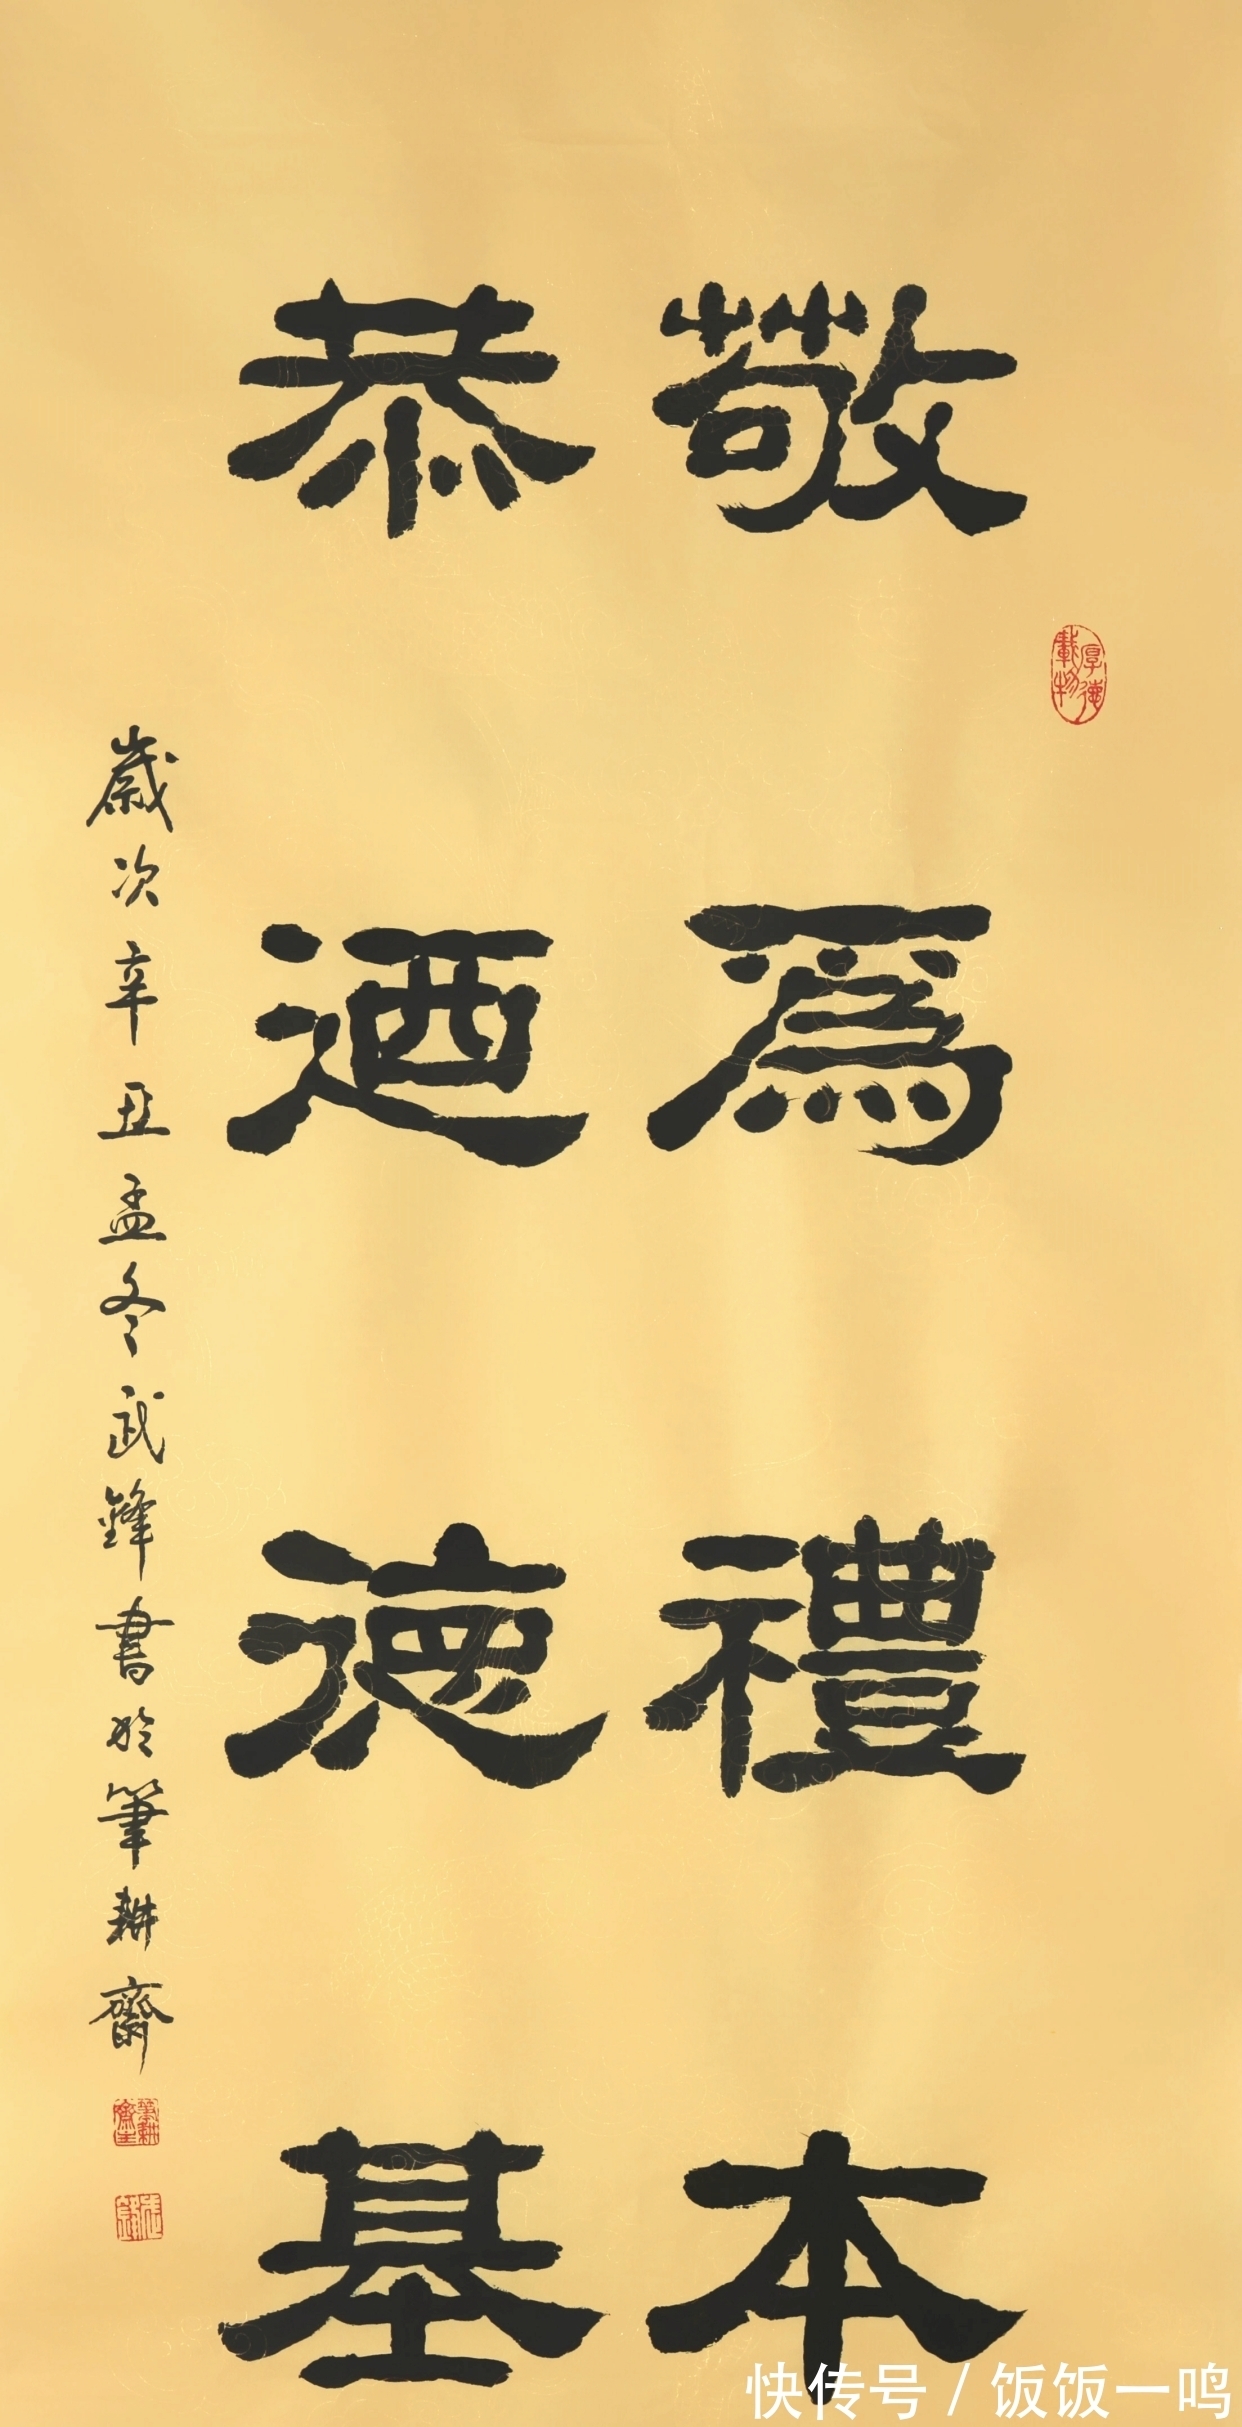 敬為禮本
恭迺德基
歲次辛丑孟冬武鋒書於筆耕齋
厚德載物
快传号 / 饭饭一鸣